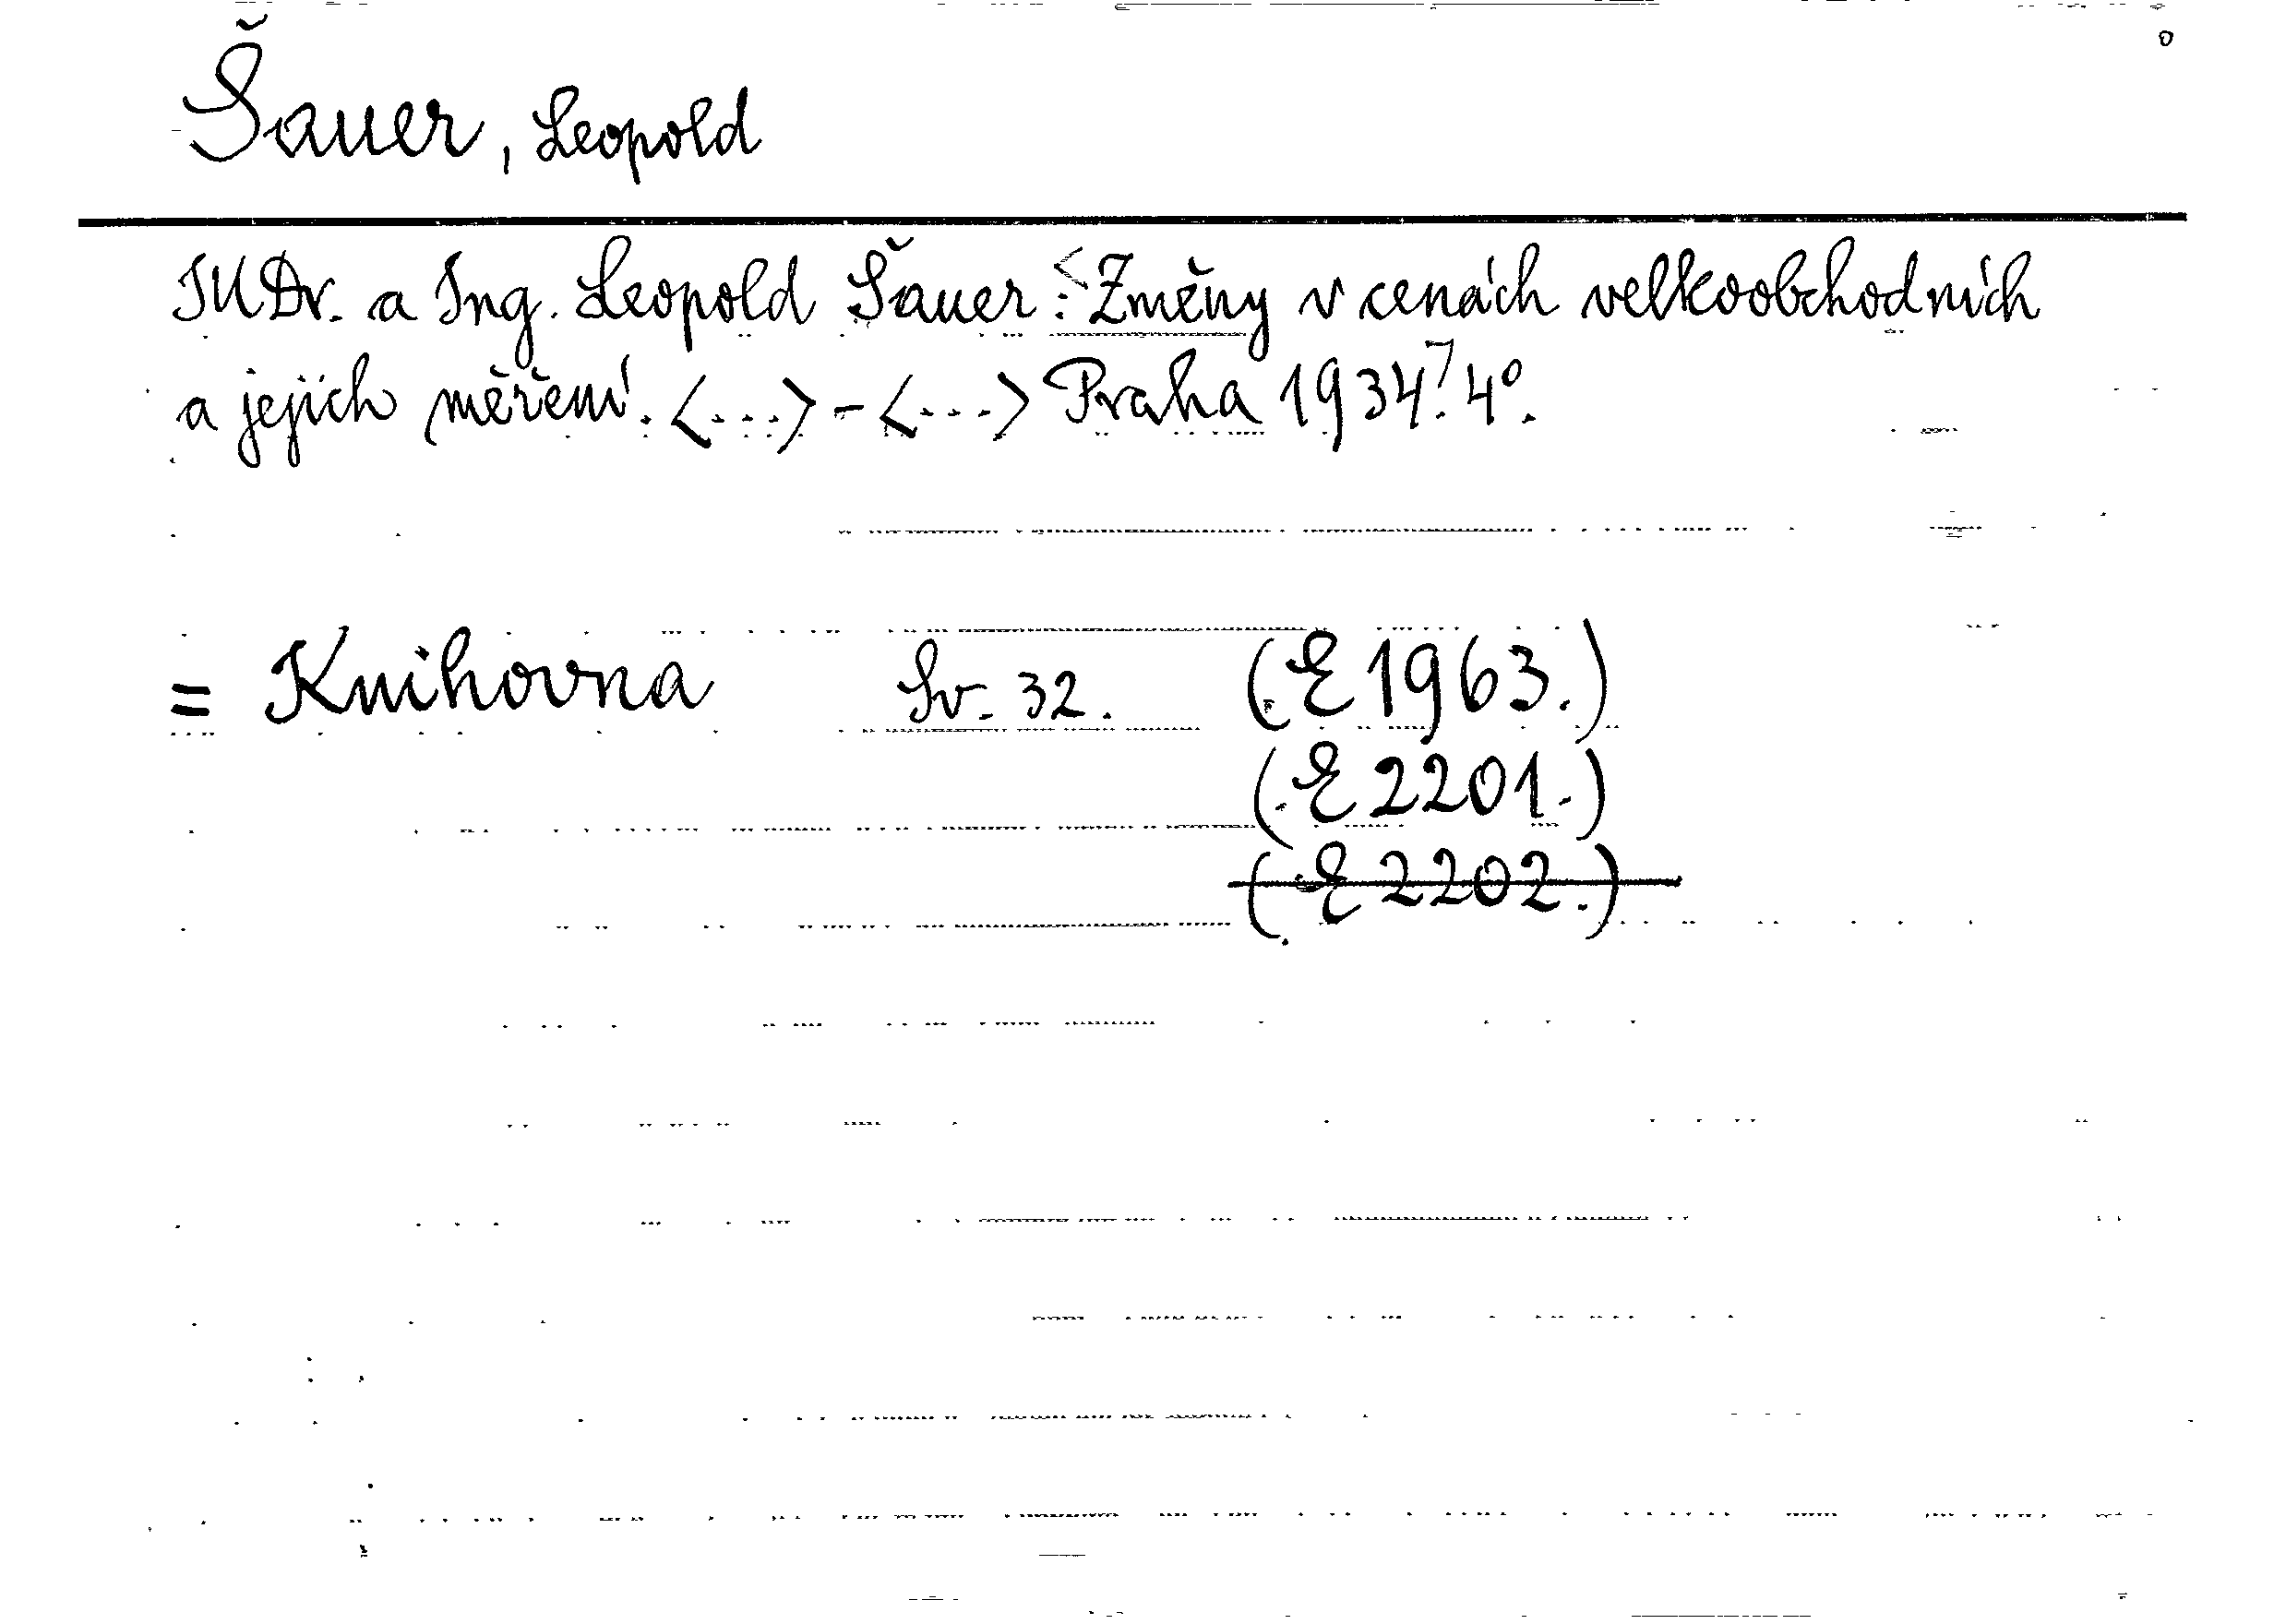 Šauer, Leopold
JUDr. a Ing. Leopold Šauer: <Změny v cenách velkoobchodních
a jejich měření. <...> - <...> Praha 1934.> 4°.
= Knihovna Sv. 32. (E 1963.)
(E 2201.)
(E 2202.)